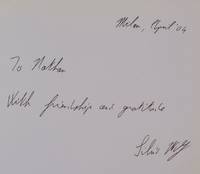 Milan, April '04
To Nathan
With friendship and gratitude